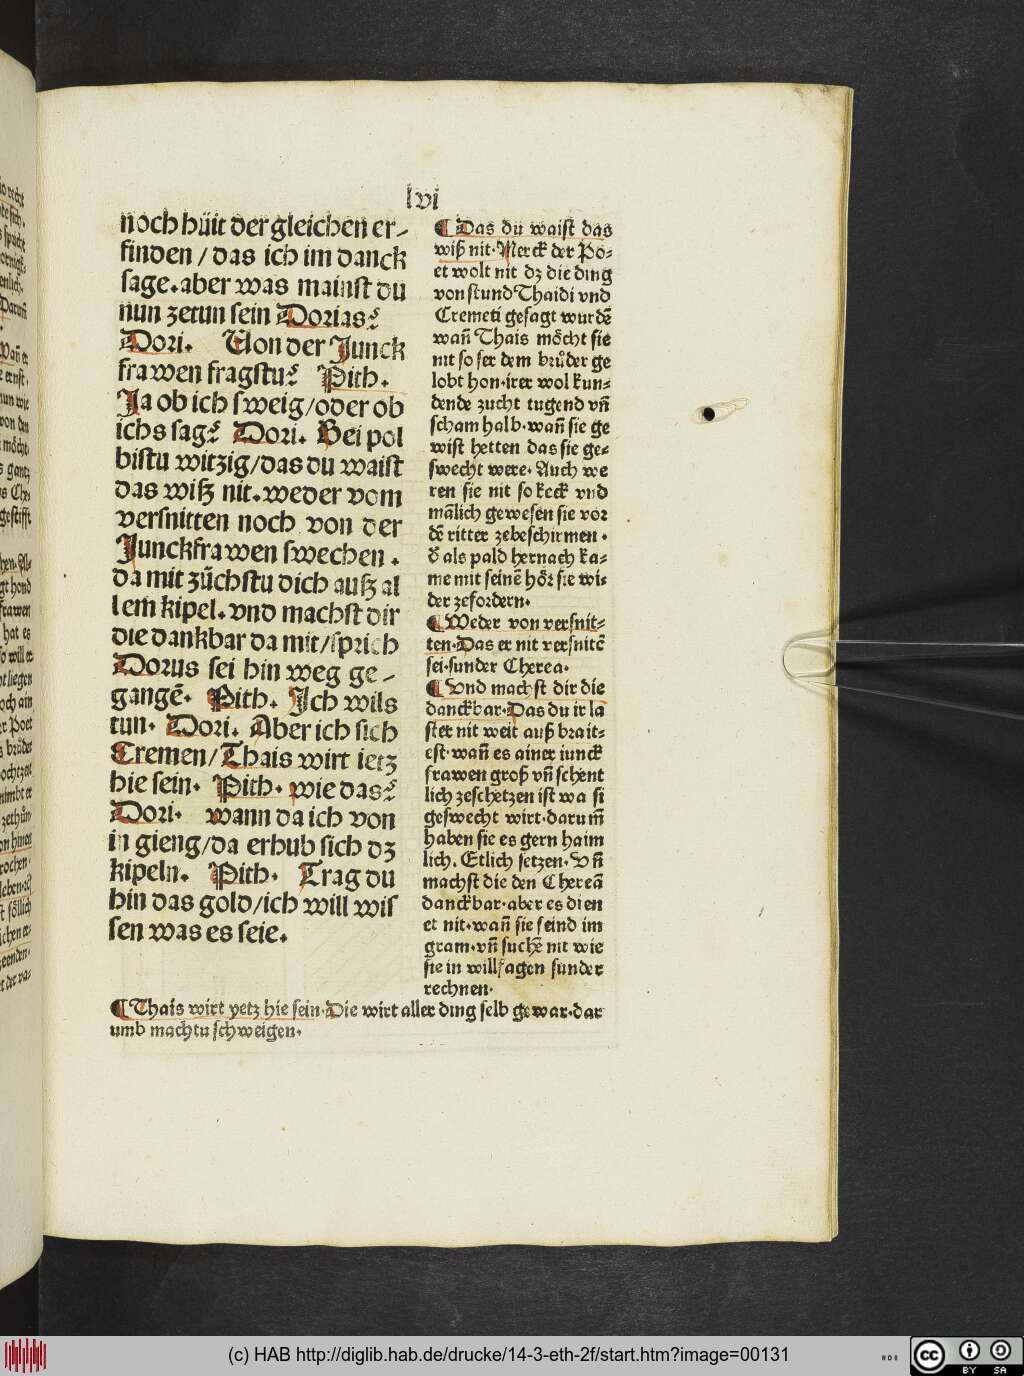 lvi
noch hüit der gleichen er-
finden / das ich im danck
sage. aber was mainst du
nun zetun sein Dorias?
Dori. Von der Junck
frawen fragstu? Pith.
Ja ob ich sweig/oder ob
ichs sag? Dori. Bei pol
bistu witzig/das du waist
das wiß nit. weder vom
versnitten noch von der
Junckfrawen swechen.
da mit züchstu dich auß al
lem kipel. vnd machst dir
die danckbar da mit/sprich
Dorus sei hin weg ge-
gangē. Pith. Ich wils
tun. Dori. Aber ich sich
Cremen/Thais wirt ietz
hie sein. Pith. wie das?
Dori. wann da ich von
in gieng/da erhub sich dz
kipeln. Pith. Trag du
hin das gold/ich will wis
sen was es seie.
¶ Das du waist das
wiß nit. Merck der Po-
et wolt nit dz die ding
von stund Thaidi vnd
Cremeti gesagt wurdē
wañ Thais möcht sie
nit so ser dem brůder ge
lobt hon. irer wol kun-
dende zucht tugend vñ
scham halb. wañ sie ge
wist hetten das sie ge-
swecht were. Auch we
ren sie nit so keck vnd
mālich gewesen sie vor
dē ritter zebeschirmen.
d̄ als pald hernach ka-
me mit seinē hör sie wi-
der zefordern.
¶ Weder von versnit-
ten. Das er nit versnitē
sei. sunder Cherea.
¶ Vnd machst dir die
danckbar. Das du ir la
ster nit weit auß brait-
est. wañ es ainer iunck
frawen groß vñ schent
lich zeschetzen ist wa si
geswecht wirt. darum̄
haben sie es gern haim
lich. Etlich setzen. Vñ
machst die den Chereā
danckbar. aber es dien
et nit. wañ sie seind im
gram. vñ suchē nit wie
sie in willfagen sunder
rechnen.
¶ Thais wirt yetz hie sein. Die wirt aller ding selb gewar. dar
umb machtu schweigen.
(c) HAB http://diglib.hab.de/drucke/14-3-eth-2f/start.htm?image=00131
cc BY SA